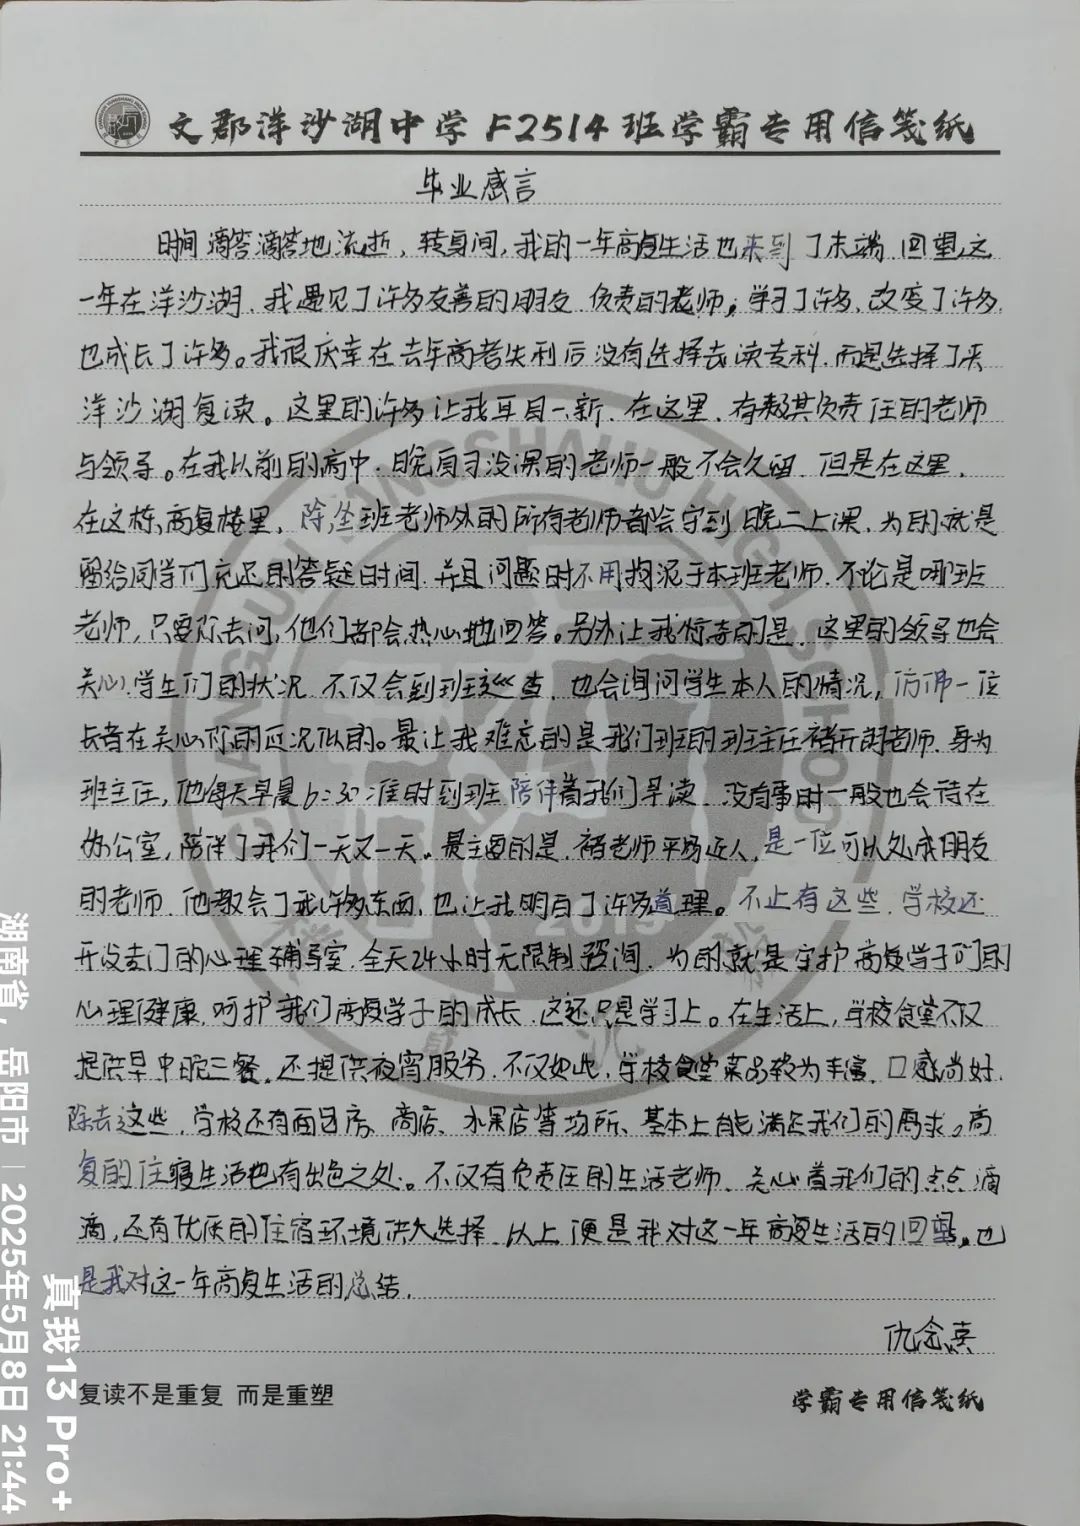 文郡洋沙湖中学F2514班学霸专用信笺纸
毕业感言
时间滴答滴答地流逝，转身间，我的一年高复生活也来到了末端，回望这
一年在洋沙湖，我遇见了许多友善的朋友，负责的老师，学习了许多，改变了许多，
也成长了许多。我很庆幸在去年高考失利后没有选择去读专科，而是选择了来
洋沙湖复读。这里的许多让我耳目一新，在这里，有极其负责任的老师
与领导。在我以前的高中，晚自习没课的老师一般不会久留，但是在这里，
在这栋高复楼里，除坐班老师外的所有老师都会守到晚二上课，为的就是
留给同学们充足的答疑时间，并且问题时不用拘泥于本班老师，不论是哪班
老师，只要你去问，他们都会热心地回答。另外让我惊奇的是，这里的领导也会
关心学生们的状况，不仅会到班巡查，也会询问学生本人的情况，仿佛一位
长者在关心你的近况似的。最让我难忘的是我们班的班主任褚开朗老师，身为
班主任，他每天早晨6:30准时到班陪伴着我们早读，没有事时一般也会待在
办公室，陪伴了我们一天又一天。最主要的是，褚老师平易近人，是一位可以处成朋友
的老师，他教会了我许多东西，也让我明白了许多道理。不止有这些，学校还
开设专门的心理辅导室，全天24小时无限制咨询，为的就是守护高复学子们的
心理健康，呵护我们高复学子的成长，这还只是学习上。在生活上，学校食堂不仅
提供早中晚三餐，还提供夜宵服务，不仅如此，学校食堂菜品较为丰富，口感尚好，
除去这些，学校还有面包房、商店、水果店等场所、基本上能满足我们的需求，高
复的住寝生活也有出色之处。不仅有负责任的生活老师，关心着我们的点点滴
滴，还有优质的住宿环境供大选择，以上便是我对这一年高复生活的回望，也
是我对这一年高复生活的总结。
仇念
复读不是重复 而是重塑
学霸专用信笺纸
CHANGJUN YANGSHAHU HIGH SCHOOL
2019
湖南省，岳阳市 | 2025年5月8日 21:44
真我13 Pro+